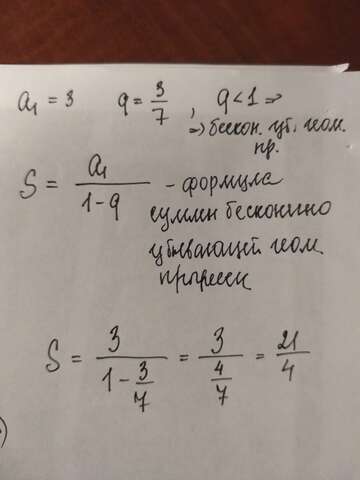 a₁ = 3 q = 3/7 , q < 1 ⇒
⇒ бескон. уб. геом.
пр.
S = a₁/(1-q) - формула
суммы бесконечно
убывающей геом.
прогрессии
S = 3/(1 - 3/7) = 3/(4/7) = 21/4
)